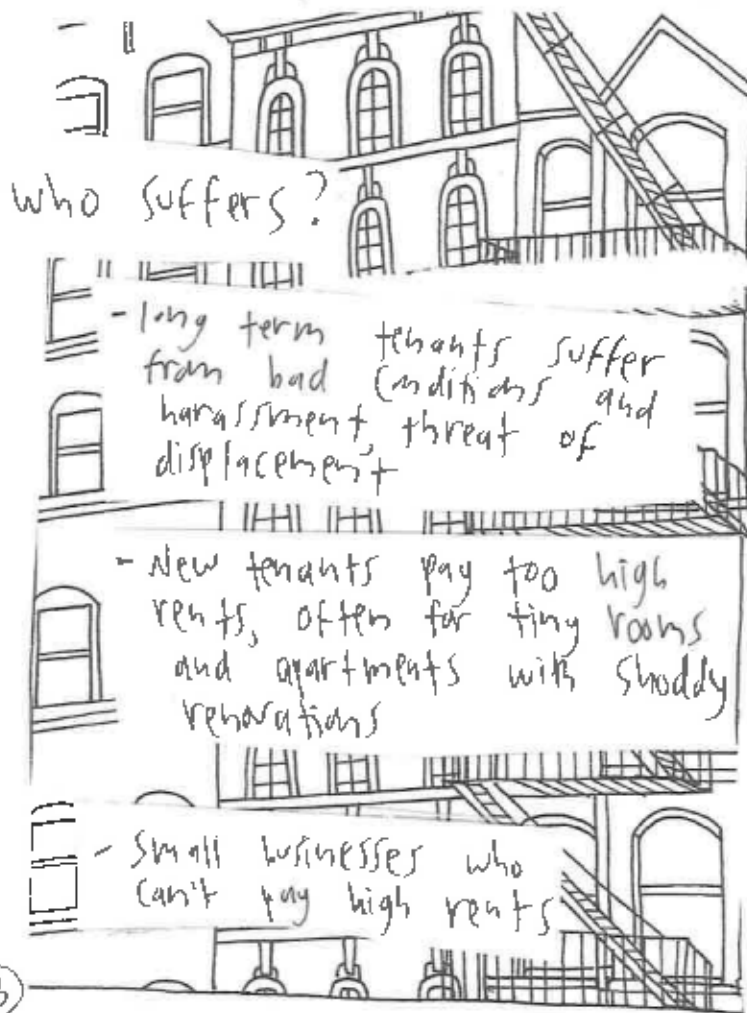 who suffers?
- long term tenants suffer
from bad conditions and
harassment, threat of
displacement
- New tenants pay too high
rents, often for tiny rooms
and apartments with shoddy
renovations
- Small businesses who
can't pay high rents